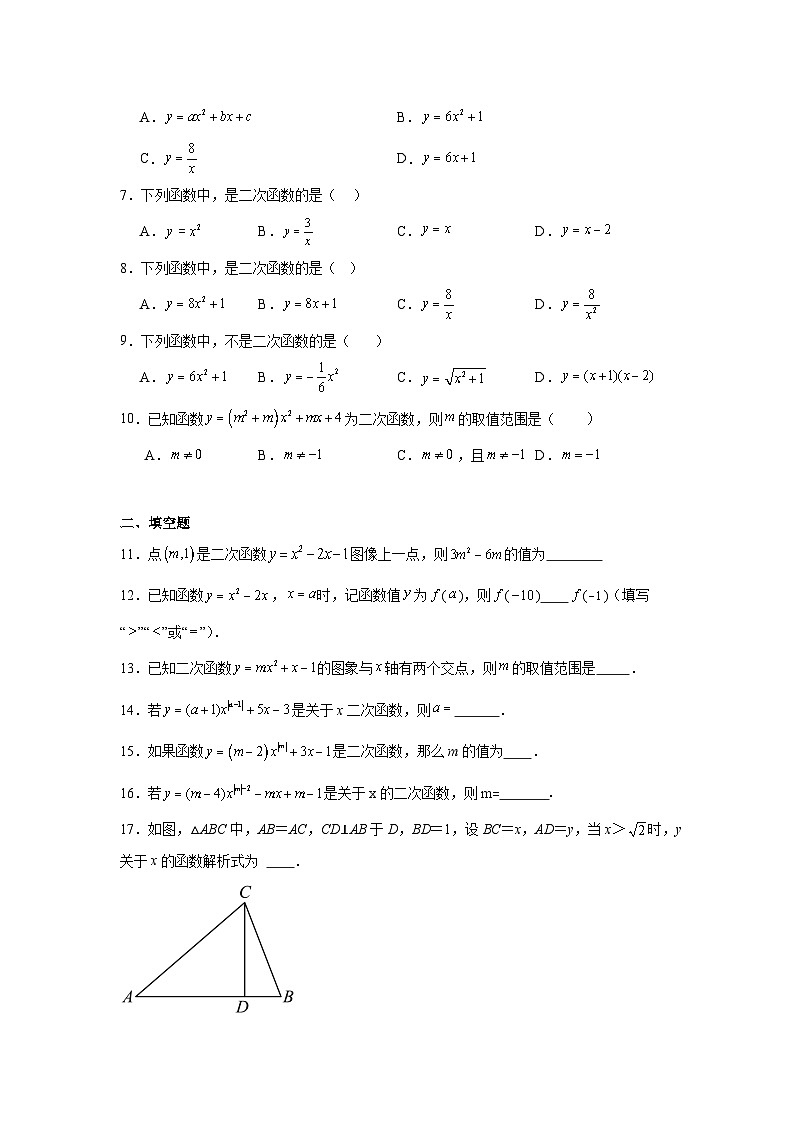 A．y = ax² + bx + c B．y = 6x² + 1
C．y = 8/x D．y = 6x + 1
7．下列函数中，是二次函数的是（ ）
A．y = x² B．y = 3/x C．y = x D．y = x − 2
8．下列函数中，是二次函数的是（ ）
A．y = 8x² + 1 B．y = 8x + 1 C．y = 8/x D．y = 8/x²
9．下列函数中，不是二次函数的是（ ）
A．y = 6x² + 1 B．y = −1/6 x² C．y = √(x² + 1) D．y = (x + 1)(x − 2)
10．已知函数y = (m² + m)x² + mx + 4为二次函数，则m的取值范围是（ ）
A．m ≠ 0 B．m ≠ −1 C．m ≠ 0，且m ≠ −1 D．m = −1
二、填空题
11．点(m,1)是二次函数y = x² − 2x − 1图像上一点，则3m² − 6m的值为________
12．已知函数y = x² − 2x，x = a时，记函数值y为f(a)，则f(−10)____f(−1)（填写
“>”“<”或“=”）．
13．已知二次函数y = mx² + x − 1的图象与x轴有两个交点，则m的取值范围是_____．
14．若y = (a + 1)x^|a−1| + 5x − 3是关于x二次函数，则a = ______．
15．如果函数y = (m − 2)x^|m| + 3x − 1是二次函数，那么m的值为____．
16．若y = (m − 4)x^|m|−2 − mx + m − 1是关于x的二次函数，则m=_______．
17．如图，△ABC中，AB＝AC，CD⊥AB于D，BD＝1，设BC＝x，AD＝y，当x＞√2时，y
关于x的函数解析式为 ____．
C
A
D
B